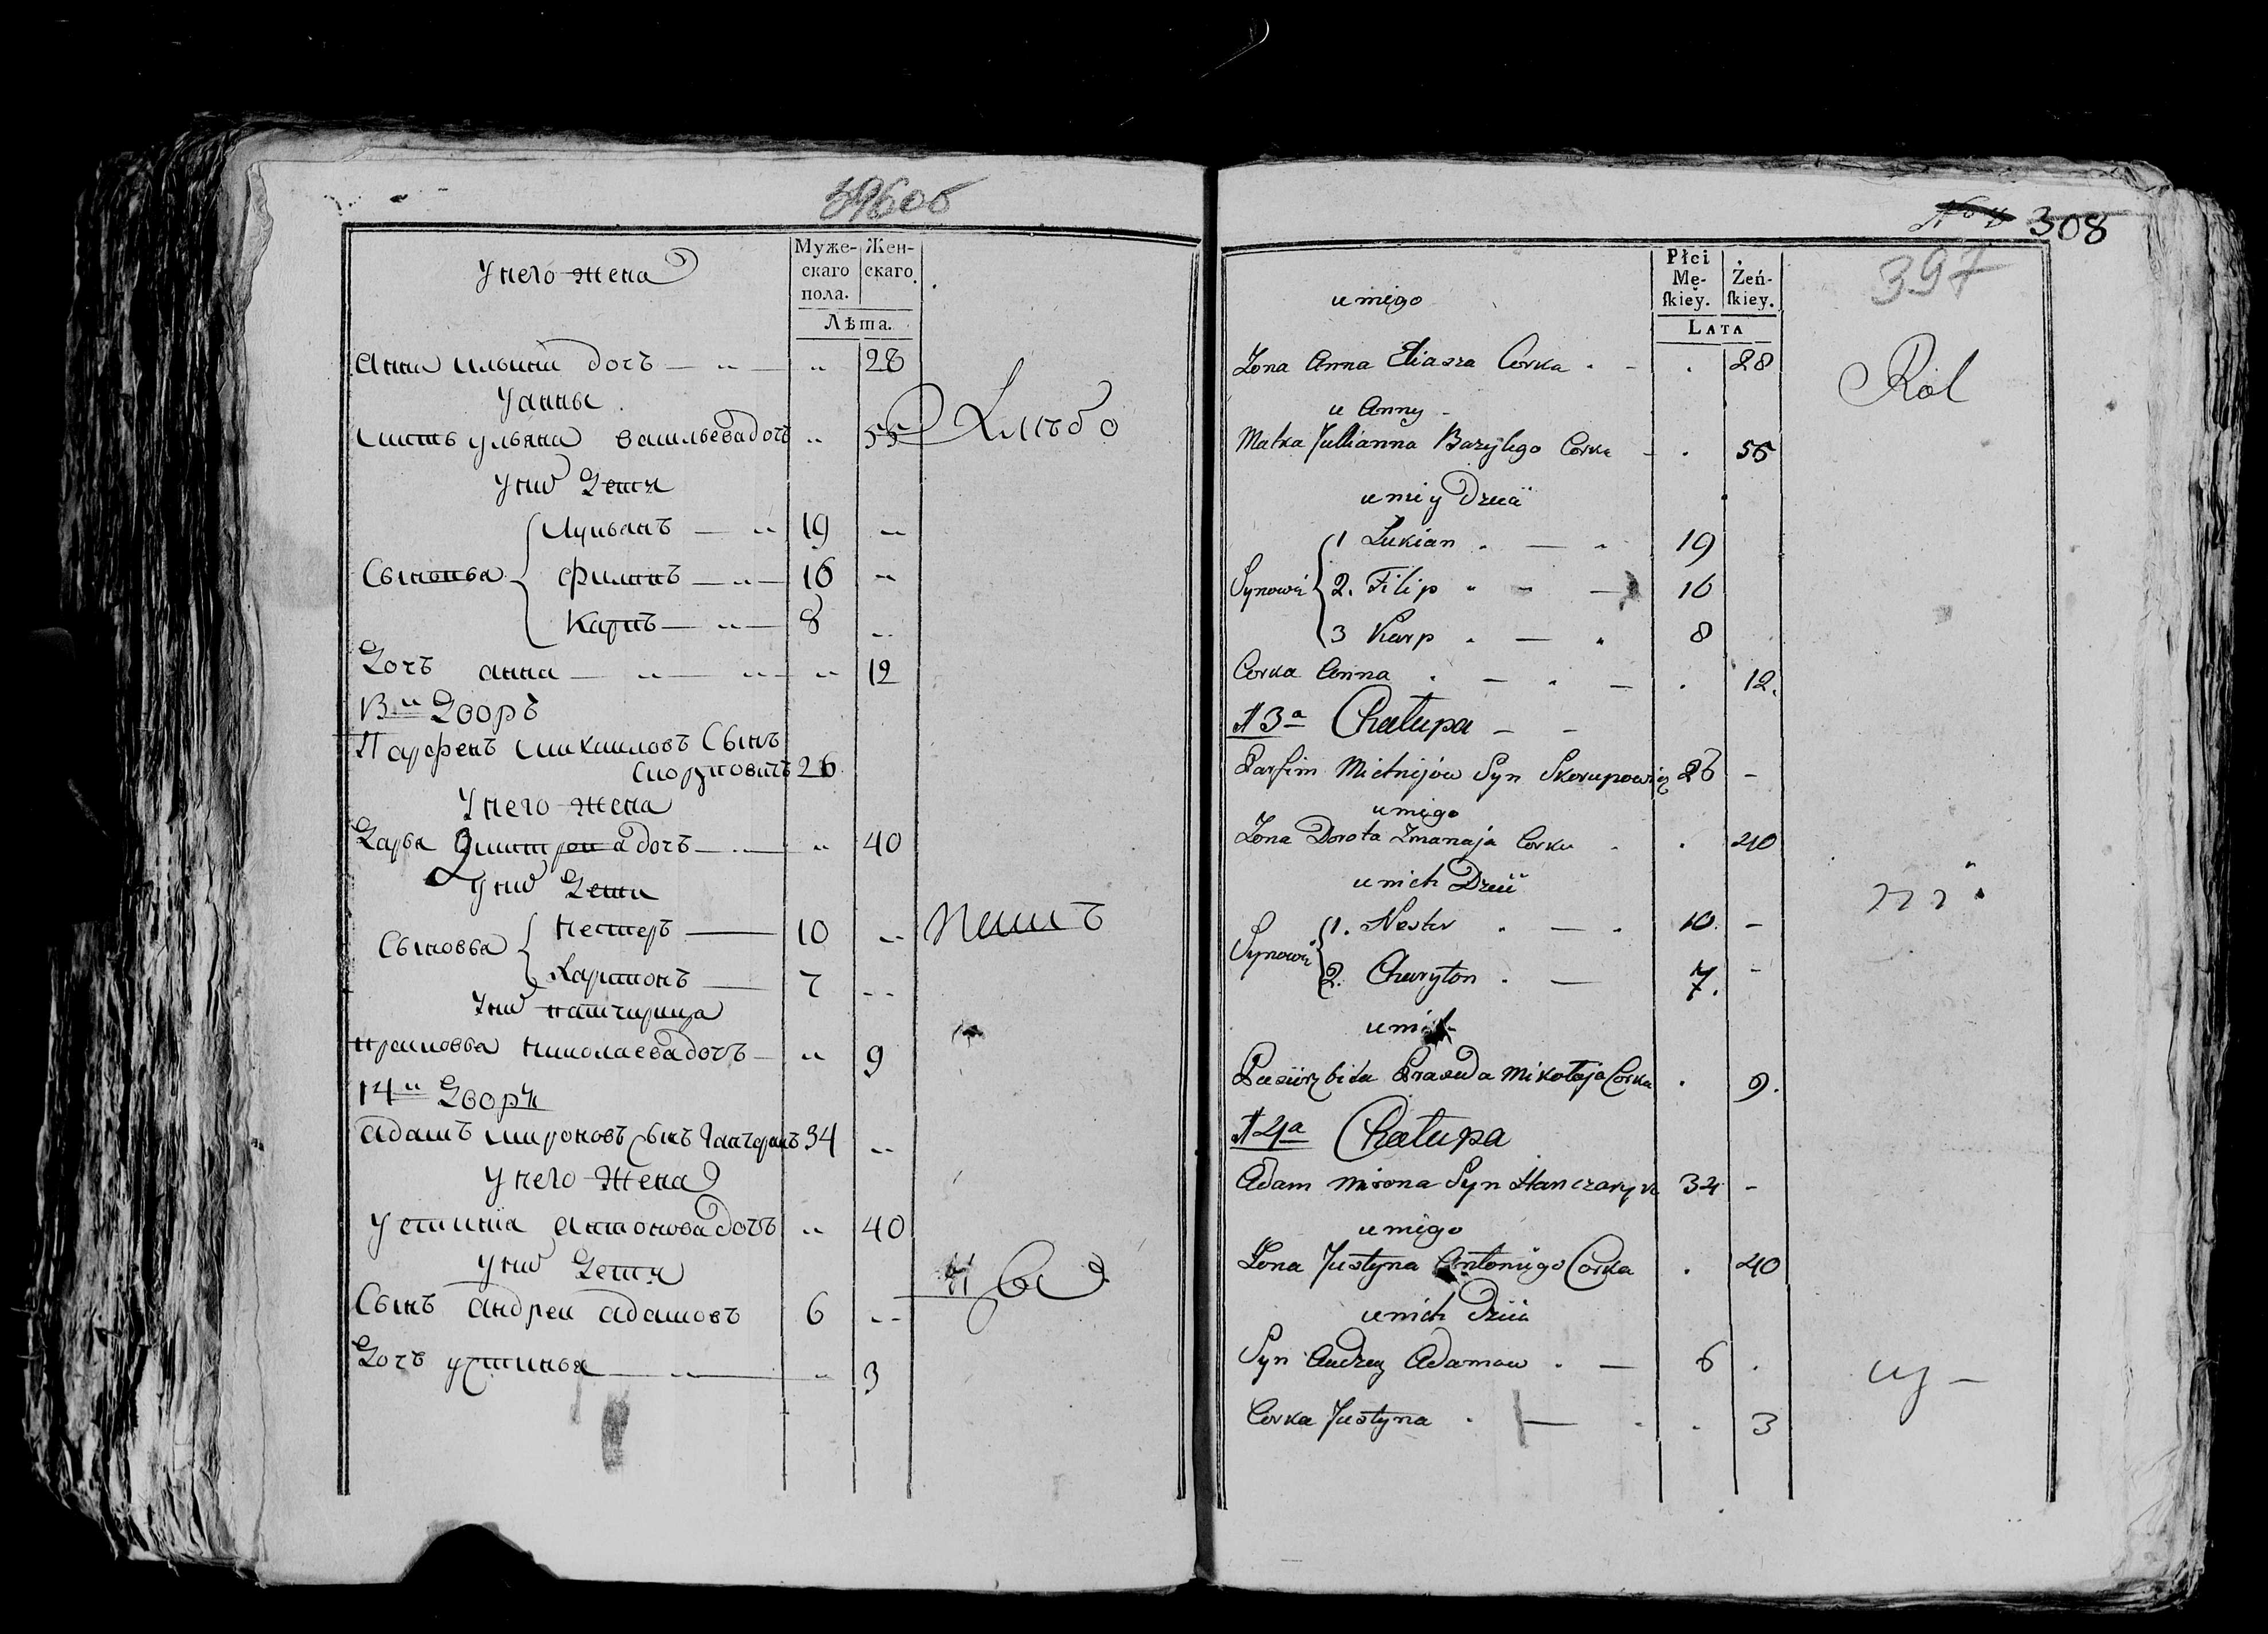 396об
Муже-
скаго
пола.
Жен-
скаго.
Лѣта.
У него жена
Анна Ильина дочъ 28
У анны
мать ульяна васильева дочъ 55
У них Дети
Сыновья
Лукьанъ 19
Филипъ 16
Карпъ 8
Дочъ анна 12
13й Дворъ
Парфенъ Сынъ
26
У него жена
Дарья дочъ 40
У них Дети
Сыновья
Нестеръ 10
Харитонъ 7
У них патчерица
николаева дочъ 9
14й Дворъ
адамъ мироновъ сынъ 34
У него Жена
устинia антонова дочъ 40
У них Дети
Сынъ андреи адамовъ 6
Дочъ устинья 3
308
397
Płci
Mę-
skiey.
Żeń-
skiey.
LATA
u niego
Żona Anna Eliasza Corka 28
Rol
u Anny
Matka Julianna Bazylego Corka 55
u niey Dzieci
Synowie
1 Lukian 19
2. Filip 16
3 Karp 8
Corka Anna 12.
13a Chalupa
Parfim Syn Skorupowicz 26
u niego
Żona Dorota Corka 40
u nich Dzieci
Synowie
1. Nester 10
2. Charyton 7.
u nich
Pasierzbica Mikołaja Corka 9.
14a Chalupa
Adam Mirona Syn Hanczaryk 34
u niego
Żona Justyna Antoniego Corka 40
u nich Dzieci
Syn Andrzey Adamow 6
Corka Justyna 3